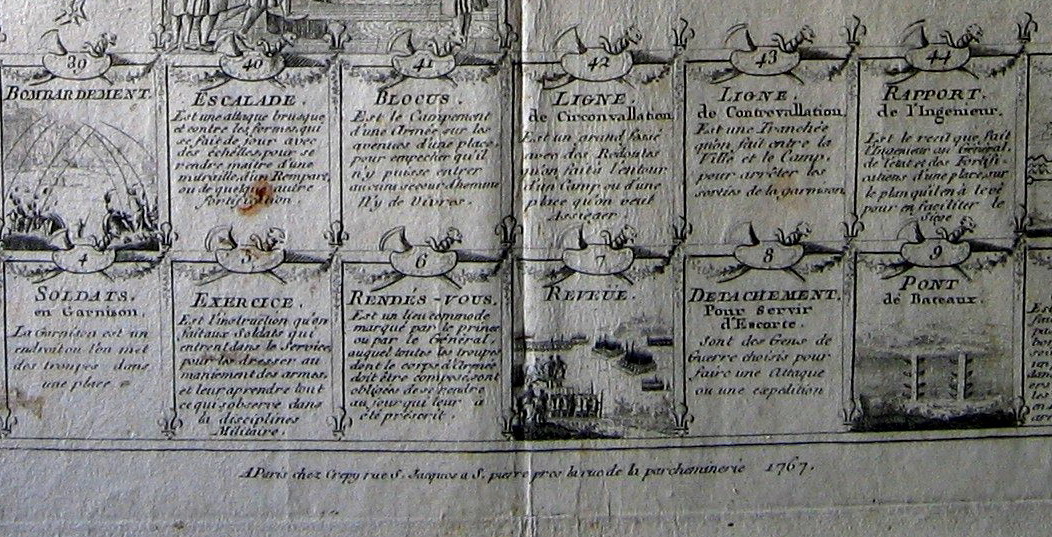 39
BOMBARDEMENT.
40
ESCALADE.
Est une attaque brusque
et contre les formes, qui
se fait de jour avec
des échelles, pour se
rendre maitre d'une
muraille, d'un Rempart,
ou de quelque autre
fortification
41
BLOCUS.
Est le Campement
d'une Armée sur les
avenues d'une place,
pour empecher qu'il
n'y puisse entrer
aucun secour d'homme
N'y de Vivres.
42
LIGNE,
de Circonvallation.
Est un grand fossé
avec des Redoutes
qu'on fait a l'entour
d'un Camp, ou d'une
place qu'on veut
Assieger
43
LIGNE.
de Contrevallation.
Est une Tranchée
qu'on fait entre la
Ville et le Camp,
pour arrêter les
sorties de la garnison
44
RAPPORT.
de l'Ingenieur.
Est le recit que fait
l'Ingenieur au Général,
de l'état et des Fortifi-
cations d'une place, sur
le plan qu'il en à levé
pour en faciliter le
Siége
4
SOLDATS.
en Garnison.
La Garnison est un
endroit ou l'on met
des troupes dans
une place
5
EXERCICE.
Est l'instruction qu'on
fait aux Soldats qui
entrent dans le Service,
pour les dresser au
maniement des armes,
et leur aprendre tout
ce qui s'observe dans
la disciplines
Militaire.
6
RENDÉS-VOUS.
Est un lieu commode
marqué par le prince
ou par le Général,
auquel toutes les troupes
dont le corps d'Armée
doit être composé, sont
obligées de se rendre
au jour qui leur à
été préscrit.
7
REVEÜE.
8
DETACHEMENT.
Pour Servir
d'Escorte.
Sont des Gens de
Guerre choisis pour
faire une Attaque
ou une expédition
9
PONT
de Bateaux.
A Paris chez Crepy rue S. Jacques a S. pierre pres la rue de la parcheminerie 1767.